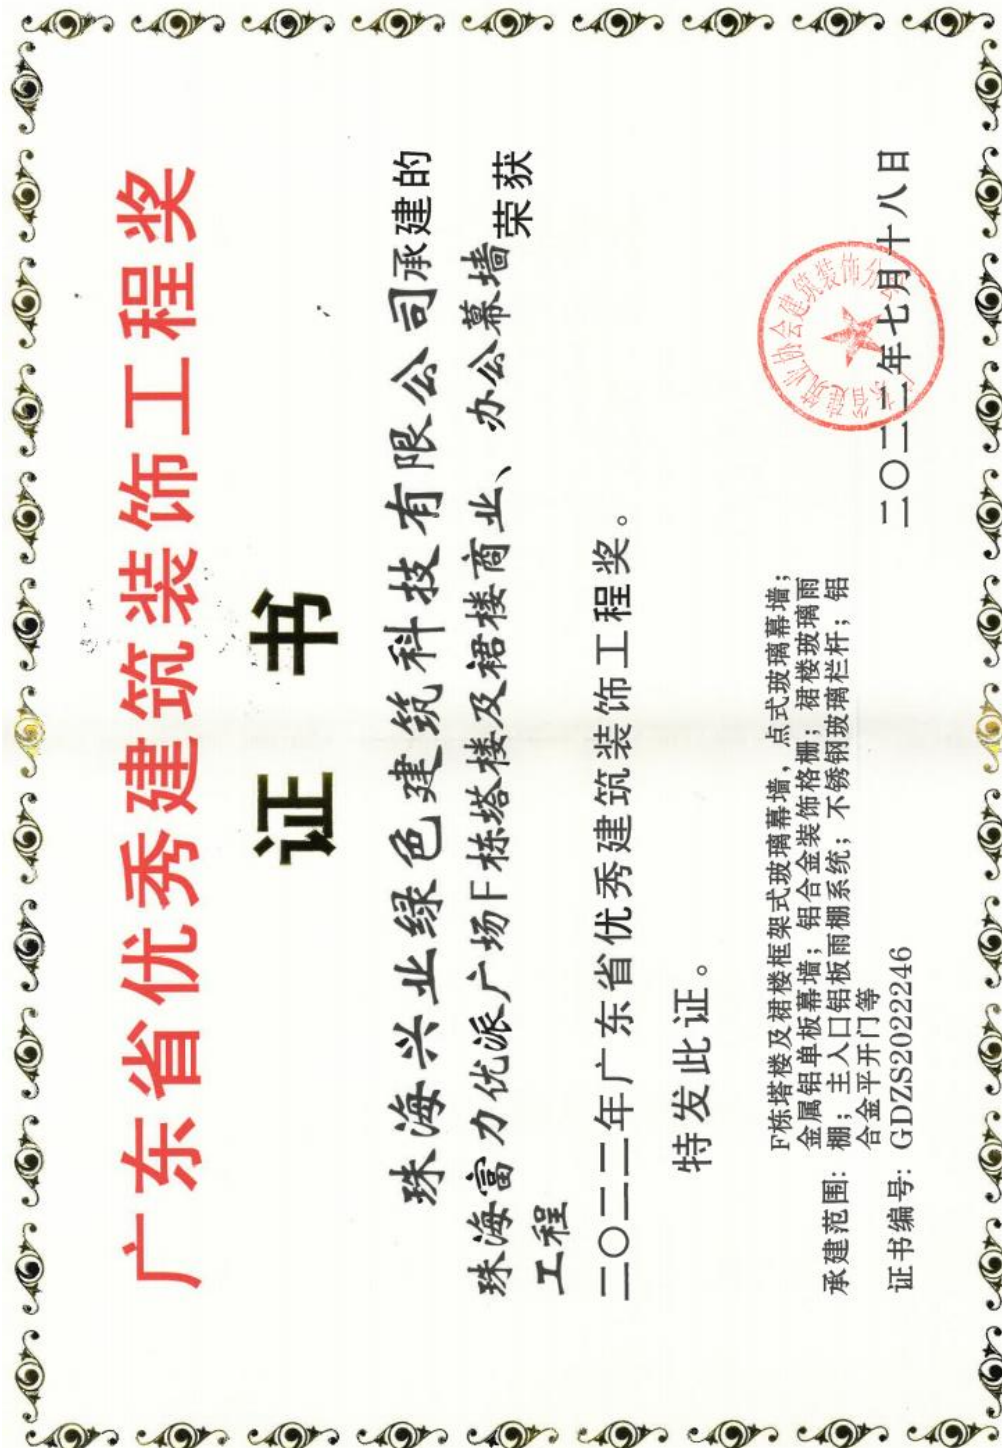 广东省优秀建筑装饰工程奖
证书
珠海兴业绿色建筑科技有限公司承建的
珠海富力优派广场F栋塔楼及裙楼商业、办公幕墙
工程
荣获
二〇二二年广东省优秀建筑装饰工程奖。
特发此证。
承建范围：
F栋塔楼及裙楼框架式玻璃幕墙，点式玻璃幕墙；
金属铝单板幕墙；铝合金装饰格栅；裙楼玻璃雨
棚；主入口铝板雨棚系统；不锈钢玻璃栏杆；铝
合金平开门等
证书编号：GDZS2022246
广东省建筑业协会建筑装饰分会
二〇二二年七月十八日